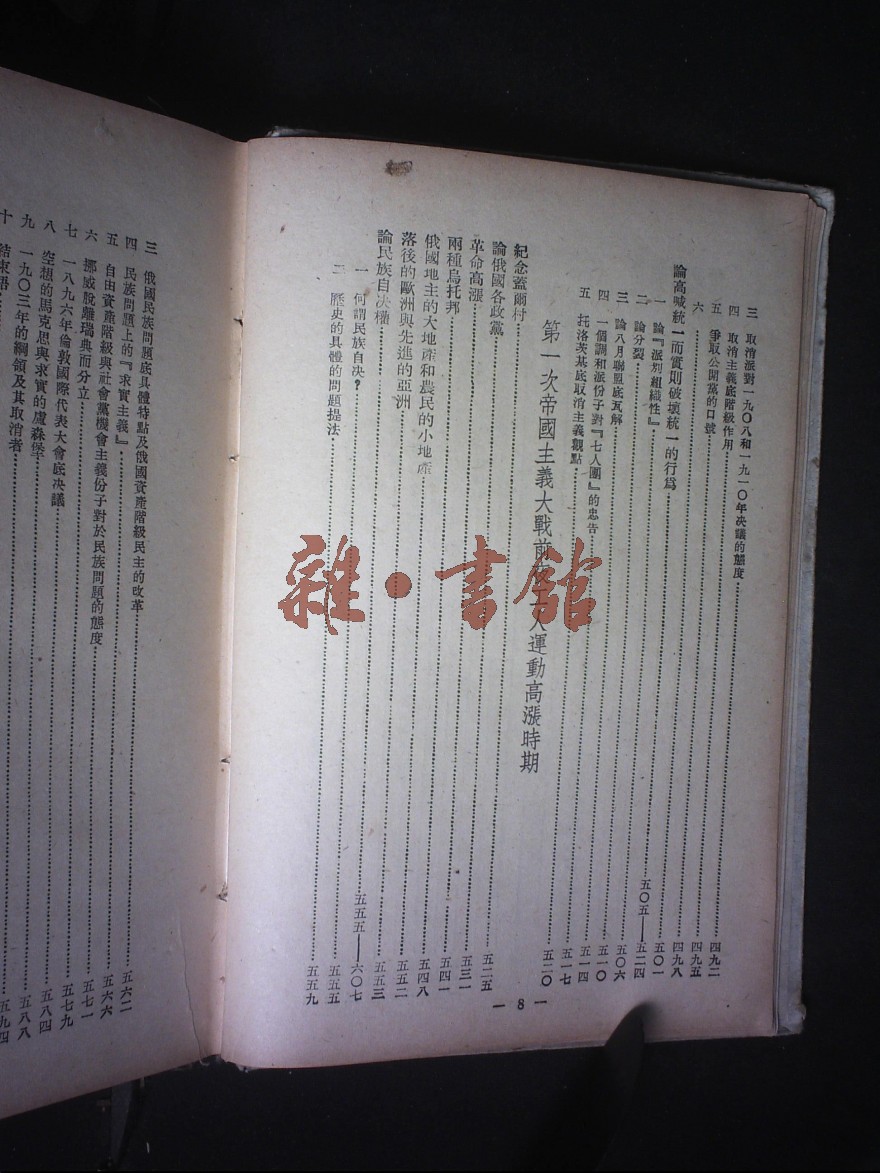 三 取消派對一九〇八和一九一〇年决議的態度……四九二
四 取消主義底階級作用……四九五
五 爭取公開黨的口號……四九八
六……五〇一
論高喊統一而實則破壞統一的行爲……五〇五——五二四
一 論『派別組織性』……五〇六
二 論分裂……五一〇
三 論八月聯盟底瓦解……五一四
四 一個調和派份子對『七人團』的忠告……五一七
五 托洛茨基底取消主義觀點……五二〇
第一次帝國主義大戰前 人運動高漲時期
紀念蓋爾村……五二五
論俄國各政黨……五三一
革命高漲……五四一
兩種烏托邦……五四八
俄國地主的大地產和農民的小地產……五五二
落後的歐洲與先進的亞洲……五五三
論民族自决權……五五五——六〇七
一 何謂民族自决？……五五五
二 歷史的具體的問題提法……五五九
— 8 —
三 俄國民族問題底具體特點及俄國資產階級民主的改革……五六二
四 民族問題上的『求實主義』……五六六
五 自由資產階級與社會黨機會主義份子對於民族問題的態度……五七一
六 挪威脫離瑞典而分立……五七九
七 一八九六年倫敦國際代表大會底决議……五八四
八 空想的馬克思與求實的盧森堡……五八八
九 一九〇三年的綱領及其取消者……五九四
十 結束語
雜·書館